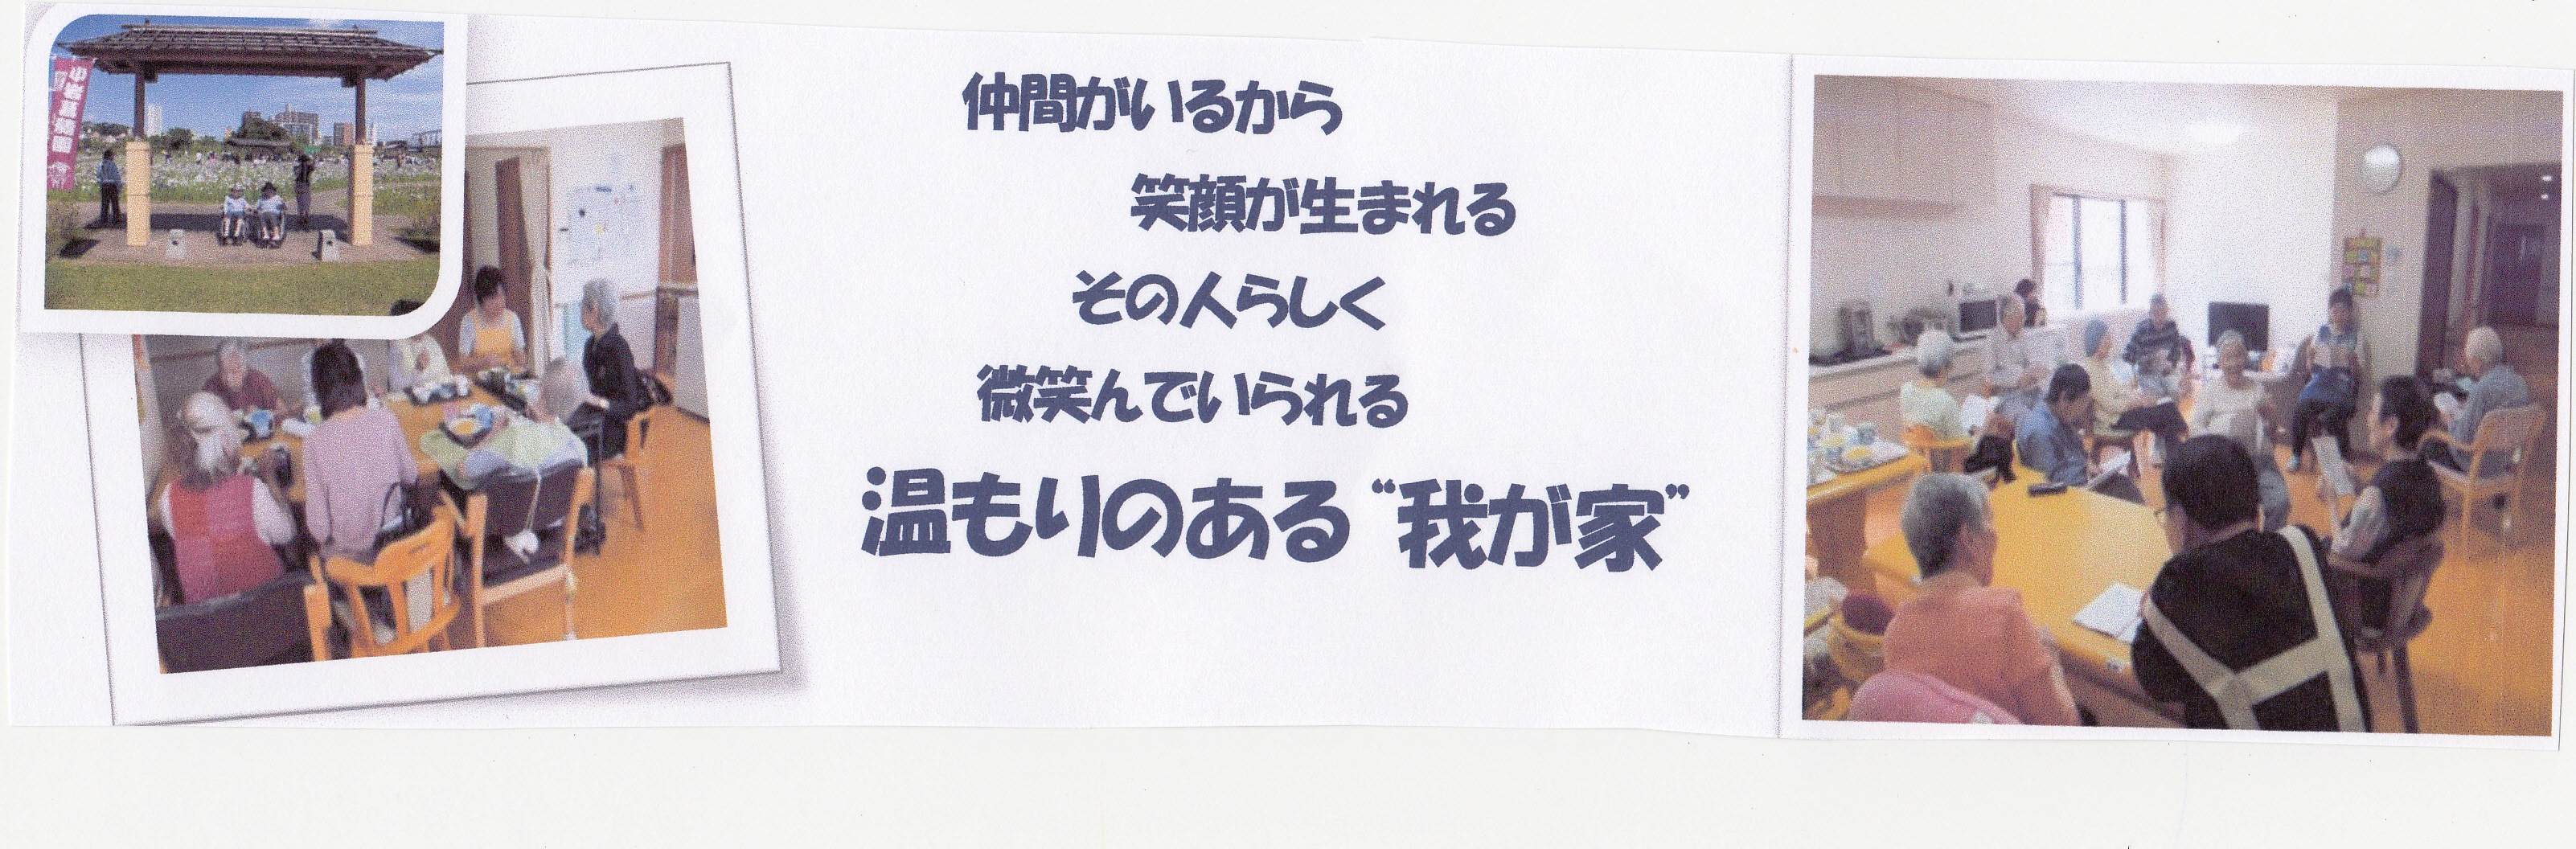 小岩菖蒲園
仲間がいるから
笑顔が生まれる
その人らしく
微笑んでいられる
温もりのある“我が家”